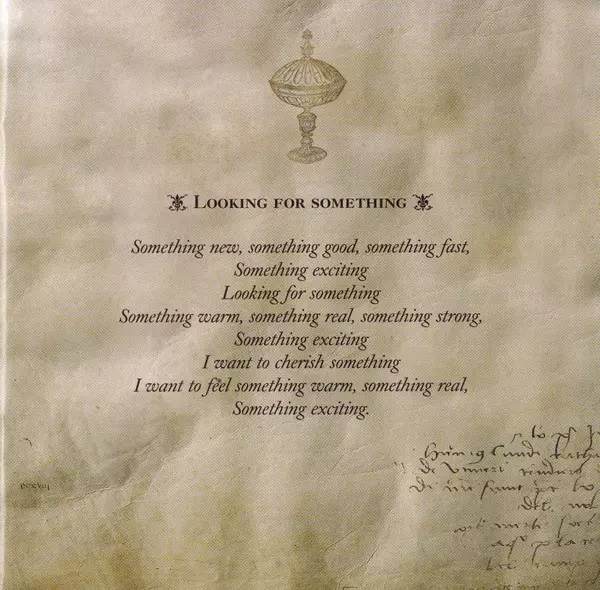 LOOKING FOR SOMETHING
Something new, something good, something fast,
Something exciting
Looking for something
Something warm, something real, something strong,
Something exciting
I want to cherish something
I want to feel something warm, something real,
Something exciting.